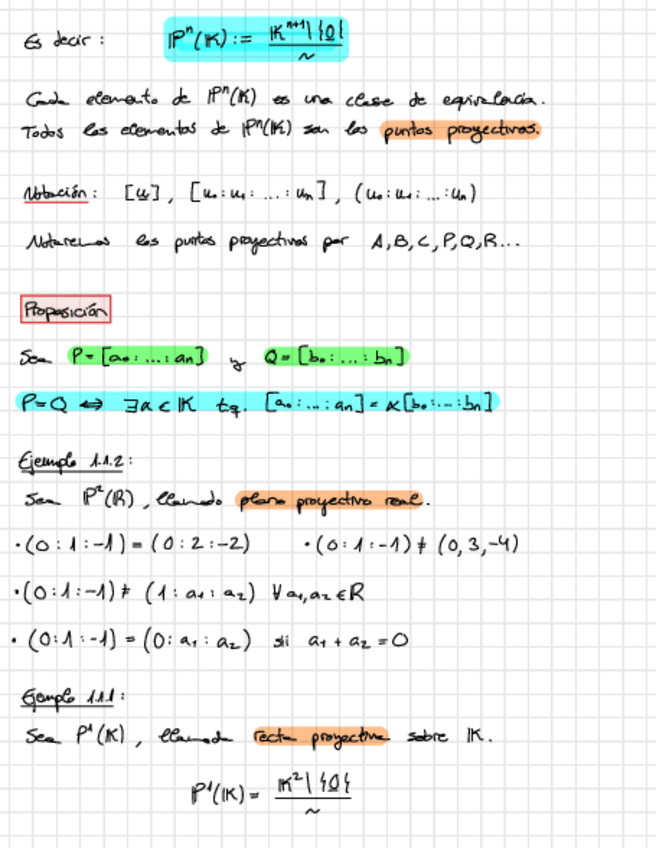 Es decir : ℙⁿ(𝕂) := 𝕂ⁿ⁺¹\{0} / ~
Cada elemento de ℙⁿ(𝕂) es una clase de equivalencia.
Todos los elementos de ℙⁿ(𝕂) son los puntos proyectivos.
Notación : [u], [u₀:u₁: ... :uₙ], (u₀:u₁:...:uₙ)
Notaremos los puntos proyectivos por A,B,C,P,Q,R...
Proposición
Sea P=[a₀:...:aₙ] y Q=[b₀:...:bₙ]
P=Q ⟺ ∃α∈𝕂 tq. [a₀:...:aₙ]=α[b₀:...:bₙ]
Ejemplo 1.1.2:
Sea ℙ²(ℝ), llamado plano proyectivo real.
·(0:1:-1)=(0:2:-2) ·(0:1:-1)≠(0,3,-4)
·(0:1:-1)≠(1:a₁:a₂) ∀a₁,a₂∈R
·(0:1:-1)=(0:a₁:a₂) sii a₁+a₂=0
Ejemplo 1.1.1:
Sea P¹(𝕂), llamada recta proyectiva sobre 𝕂.
ℙ¹(𝕂)= 𝕂²\{0} / ~